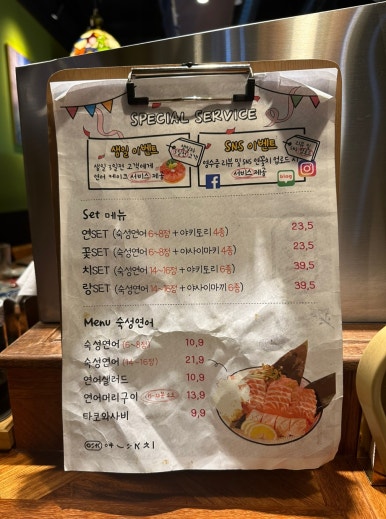 SPECIAL SERVICE
생일 이벤트
생일 3일전 고객에게
연어 케이크 서비스 제공
SNS 이벤트
영수증 리뷰 및 SNS 연꽃치 업로드 시
서비스 제공
blog
Set 메뉴
연SET (숙성연어 6~8점 + 야키토리 4종) 23,5
꽃SET (숙성연어 6~8점 + 야사이마키 4종) 23,5
치SET (숙성연어 14~16점 + 야키토리 6종) 39,5
랑SET (숙성연어 14~16점 + 야사이마끼 6종) 39,5
Menu 숙성연어
숙성연어 (6~8점) 10,9
숙성연어 (14~16점) 21,9
연어샐러드 10,9
연어머리구이 13,9
타코와사비 9,9